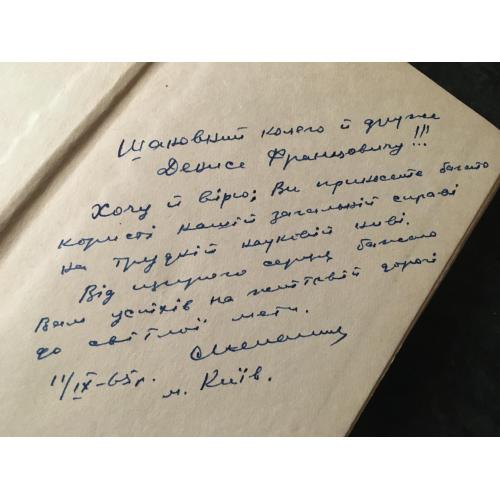 Шановний колего й друже
Денисе Францовичу!!!
Хочу й вірю; Ви принесете багато
користі нашій загальній справі
на трудній науковій ниві.
Від щирого серця бажаю
Вам успіхів на життєвій дорозі
до світлої мети.
11/IX-65р.
м. Київ.